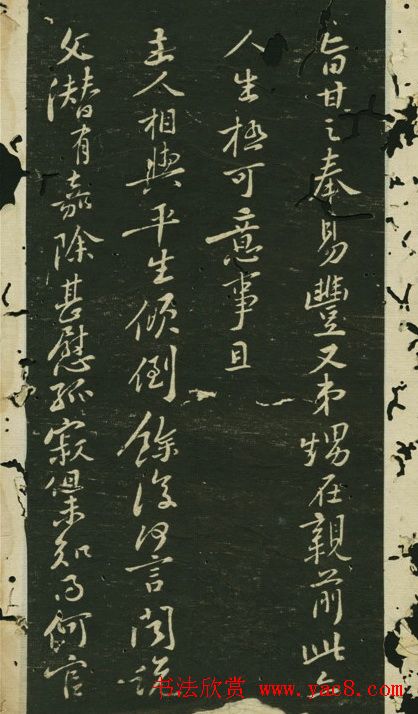 旨甘之奉易豐又弟甥在親前此
人生極可意事且
主人相與平生傾倒餘復何言聞
父潛有嘉除甚慰孤寂但未知得何官
书法欣赏 www.yac8.com